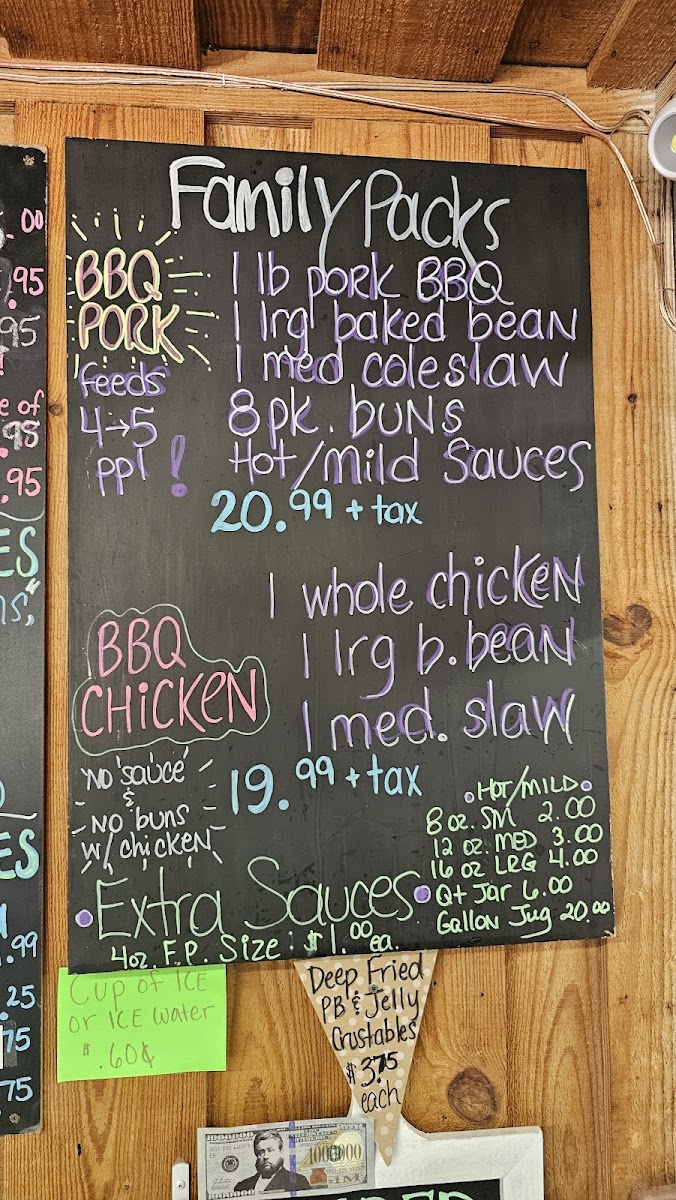 Family Packs
BBQ
PORK
feeds
4→5
ppl !
1 lb pork BBQ
1 lrg baked bean
1 med coleslaw
8pk. buns
Hot/mild Sauces
20.99 + tax
BBQ
CHiCKEN
1 whole chicken
1 lrg b.bean
1 med. slaw
19.99 + tax
No sauce
&
No buns
w/ chicken
HOT/MILD
8 oz. SM 2.00
12 oz. MED 3.00
16 oz LRG 4.00
Qt Jar 6.00
Gallon Jug 20.00
Extra Sauces
4oz. F.P. Size: $1.00 ea.
Cup of ICE
or ICE water
$.60¢
Deep Fried
PB & Jelly
Crustables
$3.75
each
1000000
.00
.95
95
e of
.98
.95
ES
.99
.25
75
75